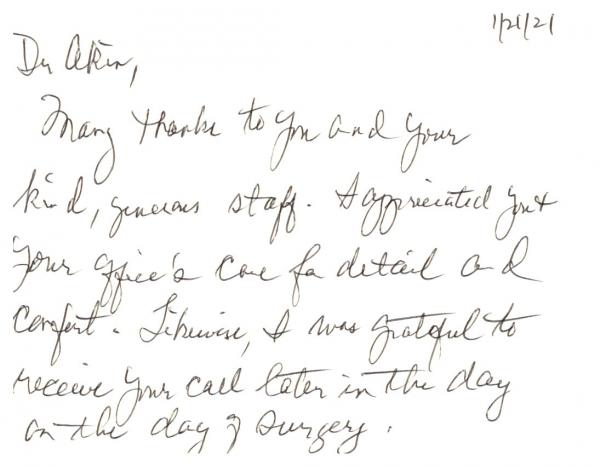 1/21/21
Dr Akin,
Many thanks to you and your
kind, generous staff. I appriciated you +
your office's care for detail and
comfort. Likewise, I was grateful to
receive your call later in the day
on the day of surgery.